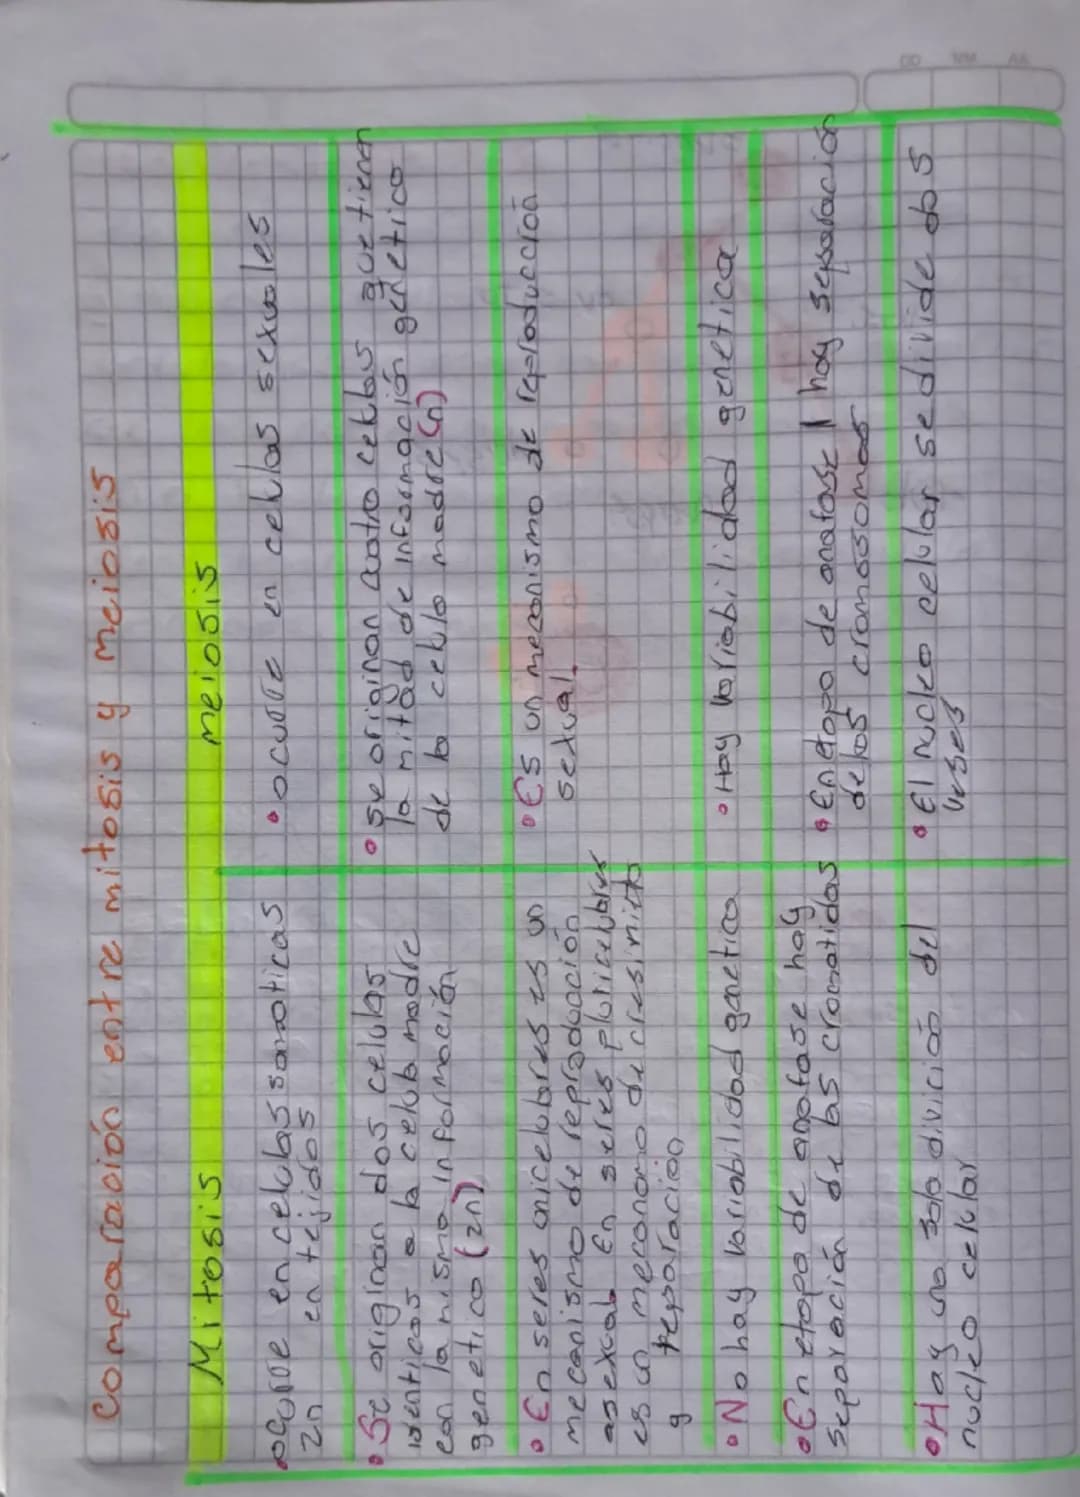 comparación entre mitosis y meiosis
Mitosis
meiosis
ocurre en celulas somaticas
en tejidos
2n
• ocurre en celulas sexuales
• Se originan dos celulas
identicas a la celula madre
con la misma información
genetico (2n)
• se originan cuatro celulas que tienen
la mitad de información genetico
de la celula madre (n)
• En seres unicelulares es un
mecanismo de reproducción
asexual. En seres pluricelulares
es un mecanismo de cresimiento
y reparación
• Es un mecanismo de reproducción
sexual.
• No hay variabilidad genetica
• Hay variabilidad genetica
• En etapa de anafase hay
separación de las cromatidas
• En etapa de anafase I hay separación
de los cromosomas
• Hay una sola divición del
nucleo celular
• El nucleo celular se divide dos
veses
DD MM AA